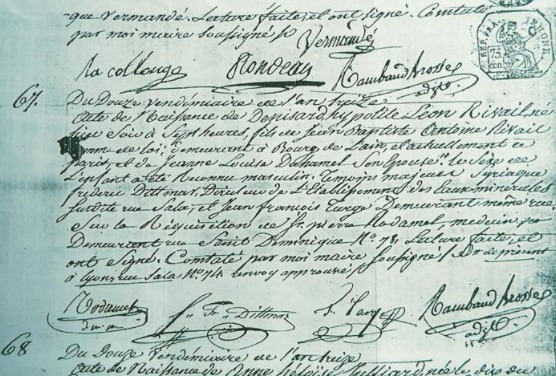 que Vermandé. Lecture faite, et ont signé. Constaté
par moi maire soussigné
Vermandé
la collonge Rondeau Rambaud
67. Du Douze Vendémiaire de l'an treize
Acte de Naissance de Denisard hypolite Léon Rivail, né
hier soir à Sept heures, fils de Jean Baptiste Antoine Rivail
homme de loi, demeurant à Bourg de l'ain, et actuellement
Paris, et de Jeanne Louise Duhamel Son épouse. le Sexe de
l'enfant a été Reconnu masculin. Témoins majeurs Syriaque
fréderic Dittmar, Directeur de l'Etablissement des Eaux minérales
Susdite rue Sala, et Jean François Targe Demeurant même rue,
Sur la Réquisition de pierre Radamel, médecin,
Demeurant rue Saint Dominique No. 78. Lecture faite, et
ont Signé. Constaté par moi maire soussigné
à Lyon, rue Sala No. 74 renvoy approuvé
Radamel Fr. Dittmar Targe Rambaud
68 Du Douze Vendémiaire de l'an treize
Acte de Naissance de Anne héloïse née le dix du